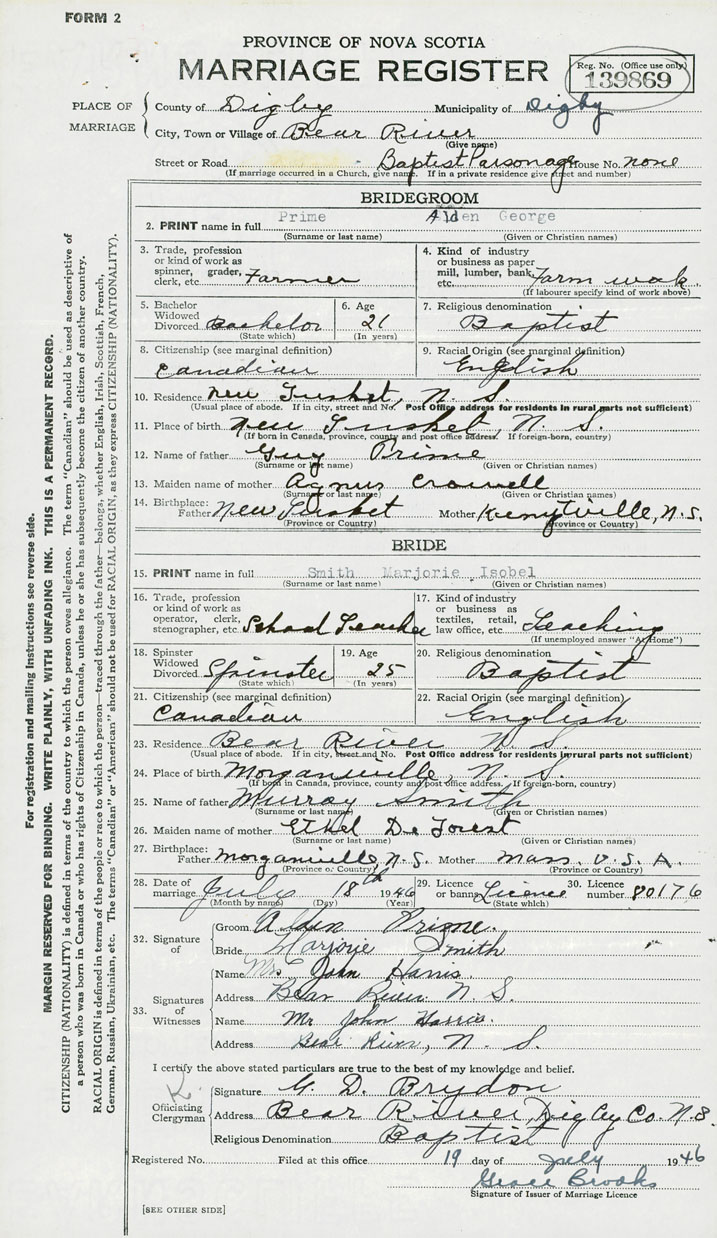 FORM 2
PROVINCE OF NOVA SCOTIA
MARRIAGE REGISTER
Reg. No. (Office use only)
139869
PLACE OF MARRIAGE
County of Digby Municipality of Digby
City, Town or Village of Bear River
(Give name)
Street or Road Baptist Parsonage House No. none
(If marriage occurred in a Church, give name. If in a private residence give street and number)
BRIDEGROOM
2. PRINT name in full Prime Alden George
(Surname or last name) (Given or Christian names)
3. Trade, profession or kind of work as spinner, grader, clerk, etc. Farmer
4. Kind of industry or business as paper mill, lumber, bank, etc. Farm work
(If labourer specify kind of work above)
5. Bachelor Widowed Divorced Bachelor
(State which)
6. Age 21
(In years)
7. Religious denomination Baptist
8. Citizenship (see marginal definition) Canadian
9. Racial Origin (see marginal definition) English
10. Residence New Tusket, N. S.
(Usual place of abode. If in city, street and No. Post Office address for residents in rural parts not sufficient)
11. Place of birth New Tusket, N. S.
(If born in Canada, province, county and post office address. If foreign-born, country)
12. Name of father Guy Prime
(Surname or last name) (Given or Christian names)
13. Maiden name of mother Agnus Crowell
(Surname or last name) (Given or Christian names)
14. Birthplace: Father New Tusket Mother N.S.
(Province or Country) (Province or Country)
BRIDE
15. PRINT name in full Smith Marjorie Isobel
(Surname or last name) (Given or Christian names)
16. Trade, profession or kind of work as operator, clerk, stenographer, etc. School Teacher
17. Kind of industry or business as textiles, retail, law office, etc. Teaching
(If unemployed answer "At Home")
18. Spinster Widowed Divorced Spinster
(State which)
19. Age 25
(In years)
20. Religious denomination Baptist
21. Citizenship (see marginal definition) Canadian
22. Racial Origin (see marginal definition) English
23. Residence Bear River N. S.
(Usual place of abode. If in city, street and No. Post Office address for residents in rural parts not sufficient)
24. Place of birth Morganville, N. S.
(If born in Canada, province, county and post office address. If foreign-born, country)
25. Name of father Murray Smith
(Surname or last name) (Given or Christian names)
26. Maiden name of mother Ethel De Forest
(Surname or last name) (Given or Christian names)
27. Birthplace: Father Morganville, N.S. Mother Mass. U.S.A.
(Province or Country) (Province or Country)
28. Date of marriage July 18th 1946
(Month by name) (Day) (Year)
29. Licence or banns Licence
(State which)
30. Licence number 80176
32. Signature of
Groom Alden Prime.
Bride Marjorie Smith
33. Signatures of Witnesses
Name Mrs. John Harris.
Address Bear River N. S.
Name Mr John Harris.
Address Bear River, N. S.
I certify the above stated particulars are true to the best of my knowledge and belief.
K.
Officiating Clergyman
Signature G. D. Brydon
Address Bear River, Digby Co. N.S.
Religious Denomination Baptist
Registered No. Filed at this office 19 day of July 1946
Grace Brooks
Signature of Issuer of Marriage Licence
[SEE OTHER SIDE]
For registration and mailing Instructions see reverse side.
MARGIN RESERVED FOR BINDING. WRITE PLAINLY, WITH UNFADING INK. THIS IS A PERMANENT RECORD.
CITIZENSHIP (NATIONALITY) is defined in terms of the country to which the person owes allegiance. The term "Canadian" should be used as descriptive of
a person who was born in Canada or who has rights of Citizenship in Canada, unless he or she has subsequently become the citizen of another country.
RACIAL ORIGIN is defined in terms of the people or race to which the person—traced through the father—belongs, whether English, Irish, Scottish, French,
German, Russian, Ukrainian, etc. The terms "Canadian" or "American" should not be used for RACIAL ORIGIN, as they express CITIZENSHIP (NATIONALITY).